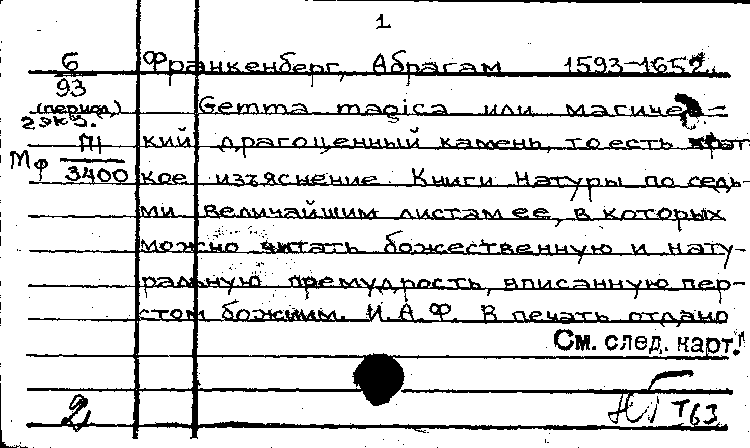 1
6 Франкенберг, Абрагам 1593-1652.
93
(период.) Gemma magica или магичес=
2 экз. кий драгоценный камень, то есть крат
Мф П1
3400 кое изъяснение Книги Натуры по седь-
ми величайшим листам ее, в которых
можно читать божественную и нату-
ральную премудрость, вписанную пер-
стом божиим. И.А.Ф. В печать отдано
См. след. карт.
2 Т63